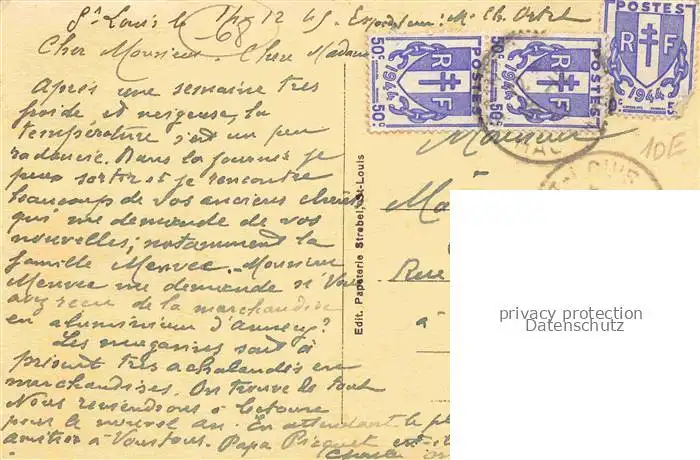 St Louis le 14 12 45. Expéditeur: Mr Ch.
68
Cher Monsieur. Chere Madame
Après une semaine très
froide et neigeuse, la
température s'est un peu
radoucie. Dans la journée je
peux sortir et je rencontre
beaucoup de vos anciens clients
qui me demande de vos
nouvelles; notamment la
famille Menvee. Monsieur
Menvee me demande si Vous
avez reçu de la marchandise
en aluminium d'Annecy?
Les magasins sont à
présent très achalandés en
marchandises. On trouve de tout
Nous reviendrons à
pour le nouvel an. En attendant le
amitiés à Vous tous. Papa Picquet est-il
POSTES
RF
50c
1944
50c
POSTES
RF
50c
1944
50c
POSTES
RF
1944
Monsieur
M
Rue
à
10E
Edit. Papeterie Strebel, St-Louis
privacy protection
Datenschutz